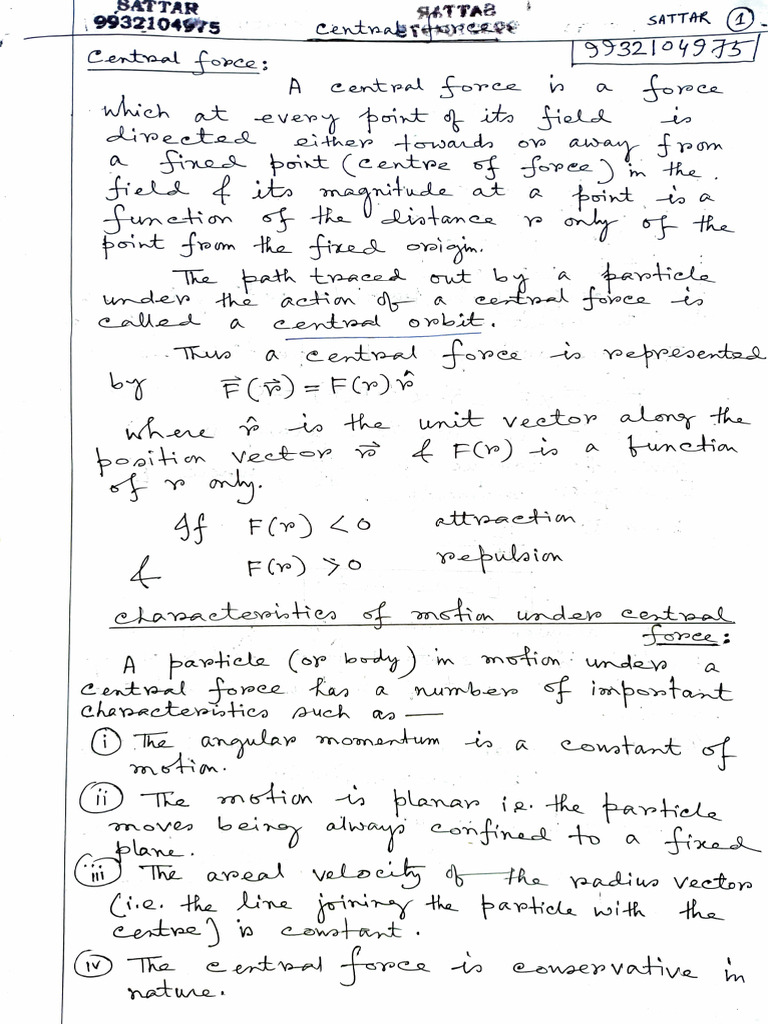 SATTAR
9932104975
SATTAR
Central forces
SATTAR 1
9932104975
Central force:
A central force is a force
which at every point of its field is
directed either towards or away from
a fixed point (centre of force) in the
field & its magnitude at a point is a
function of the distance r only of the
point from the fixed origin.
The path traced out by a particle
under the action of a central force is
called a central orbit.
Thus a central force is represented
by F⃗(r⃗) = F(r) r̂
where r̂ is the unit vector along the
position vector r⃗ & F(r) is a function
of r only.
If F(r) < 0 attraction
& F(r) > 0 repulsion
Characteristics of motion under central
force:
A particle (or body) in motion under a
central force has a number of important
characteristics such as —
(i) The angular momentum is a constant of
motion.
(ii) The motion is planar i.e. the particle
moves being always confined to a fixed
plane.
(iii) The areal velocity of the radius vector
(i.e. the line joining the particle with the
centre) is constant.
(iv) The central force is conservative in
nature.